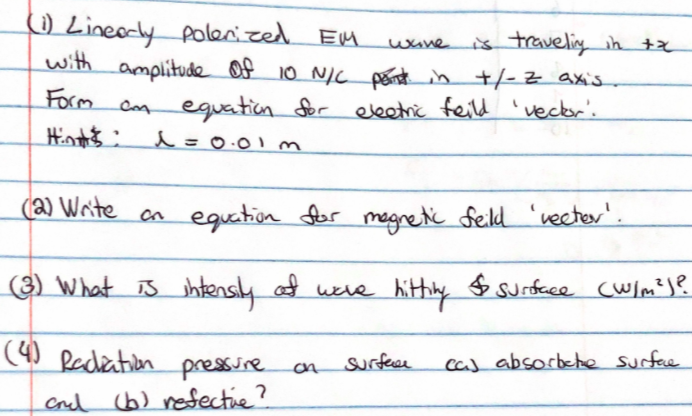 (1) Linearly polarized EM wave is traveling in +x
with amplitude of 10 N/C in +/- z axis.
Form an equation for electric feild 'vector'.
Hint: λ = 0.01 m
(2) Write an equation for magnetic feild 'vector'.
(3) What is intensity of wave hitting surface (W/m²)?
(4) Radiation pressure on surface (a) absorbche surface
and (b) refective?